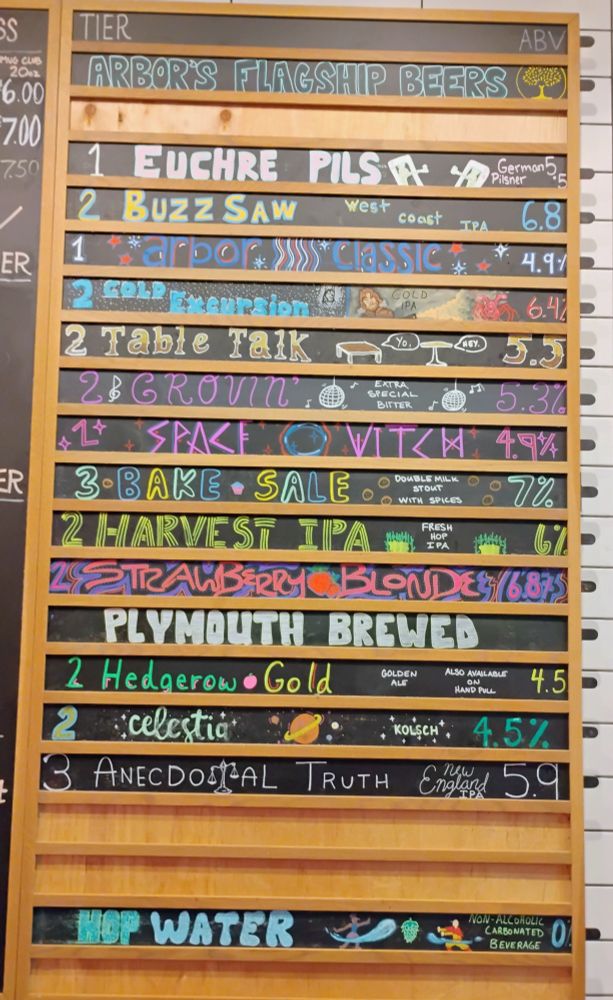 SS
TIER ABV
MUG CLUB
20oz
6.00
7.00
7.50
ARBOR'S FLAGSHIP BEERS
1 EUCHRE PILS German Pilsner 5.5
2 BUZZSAW West coast IPA 6.8
ER
1 arbor classic 4.9%
2 COLD EXCURSION COLD IPA 6.4%
2 Table Talk YO. HEY. 5.5
2 GROVIN' EXTRA SPECIAL BITTER 5.3%
1 SPACE VITCH 4.9%
ER
3 BAKE SALE DOUBLE MILK STOUT WITH SPICES 7%
2 HARVEST IPA FRESH HOP IPA 6%
2 STRAWBERRY BLONDE 6.8%
PLYMOUTH BREWED
2 Hedgerow Gold GOLDEN ALE ALSO AVAILABLE ON HAND PULL 4.5
2 celestia KOLSCH 4.5%
3 ANECDOTAL TRUTH New England IPA 5.9
HOP WATER NON-ALCOHOLIC CARBONATED BEVERAGE 0